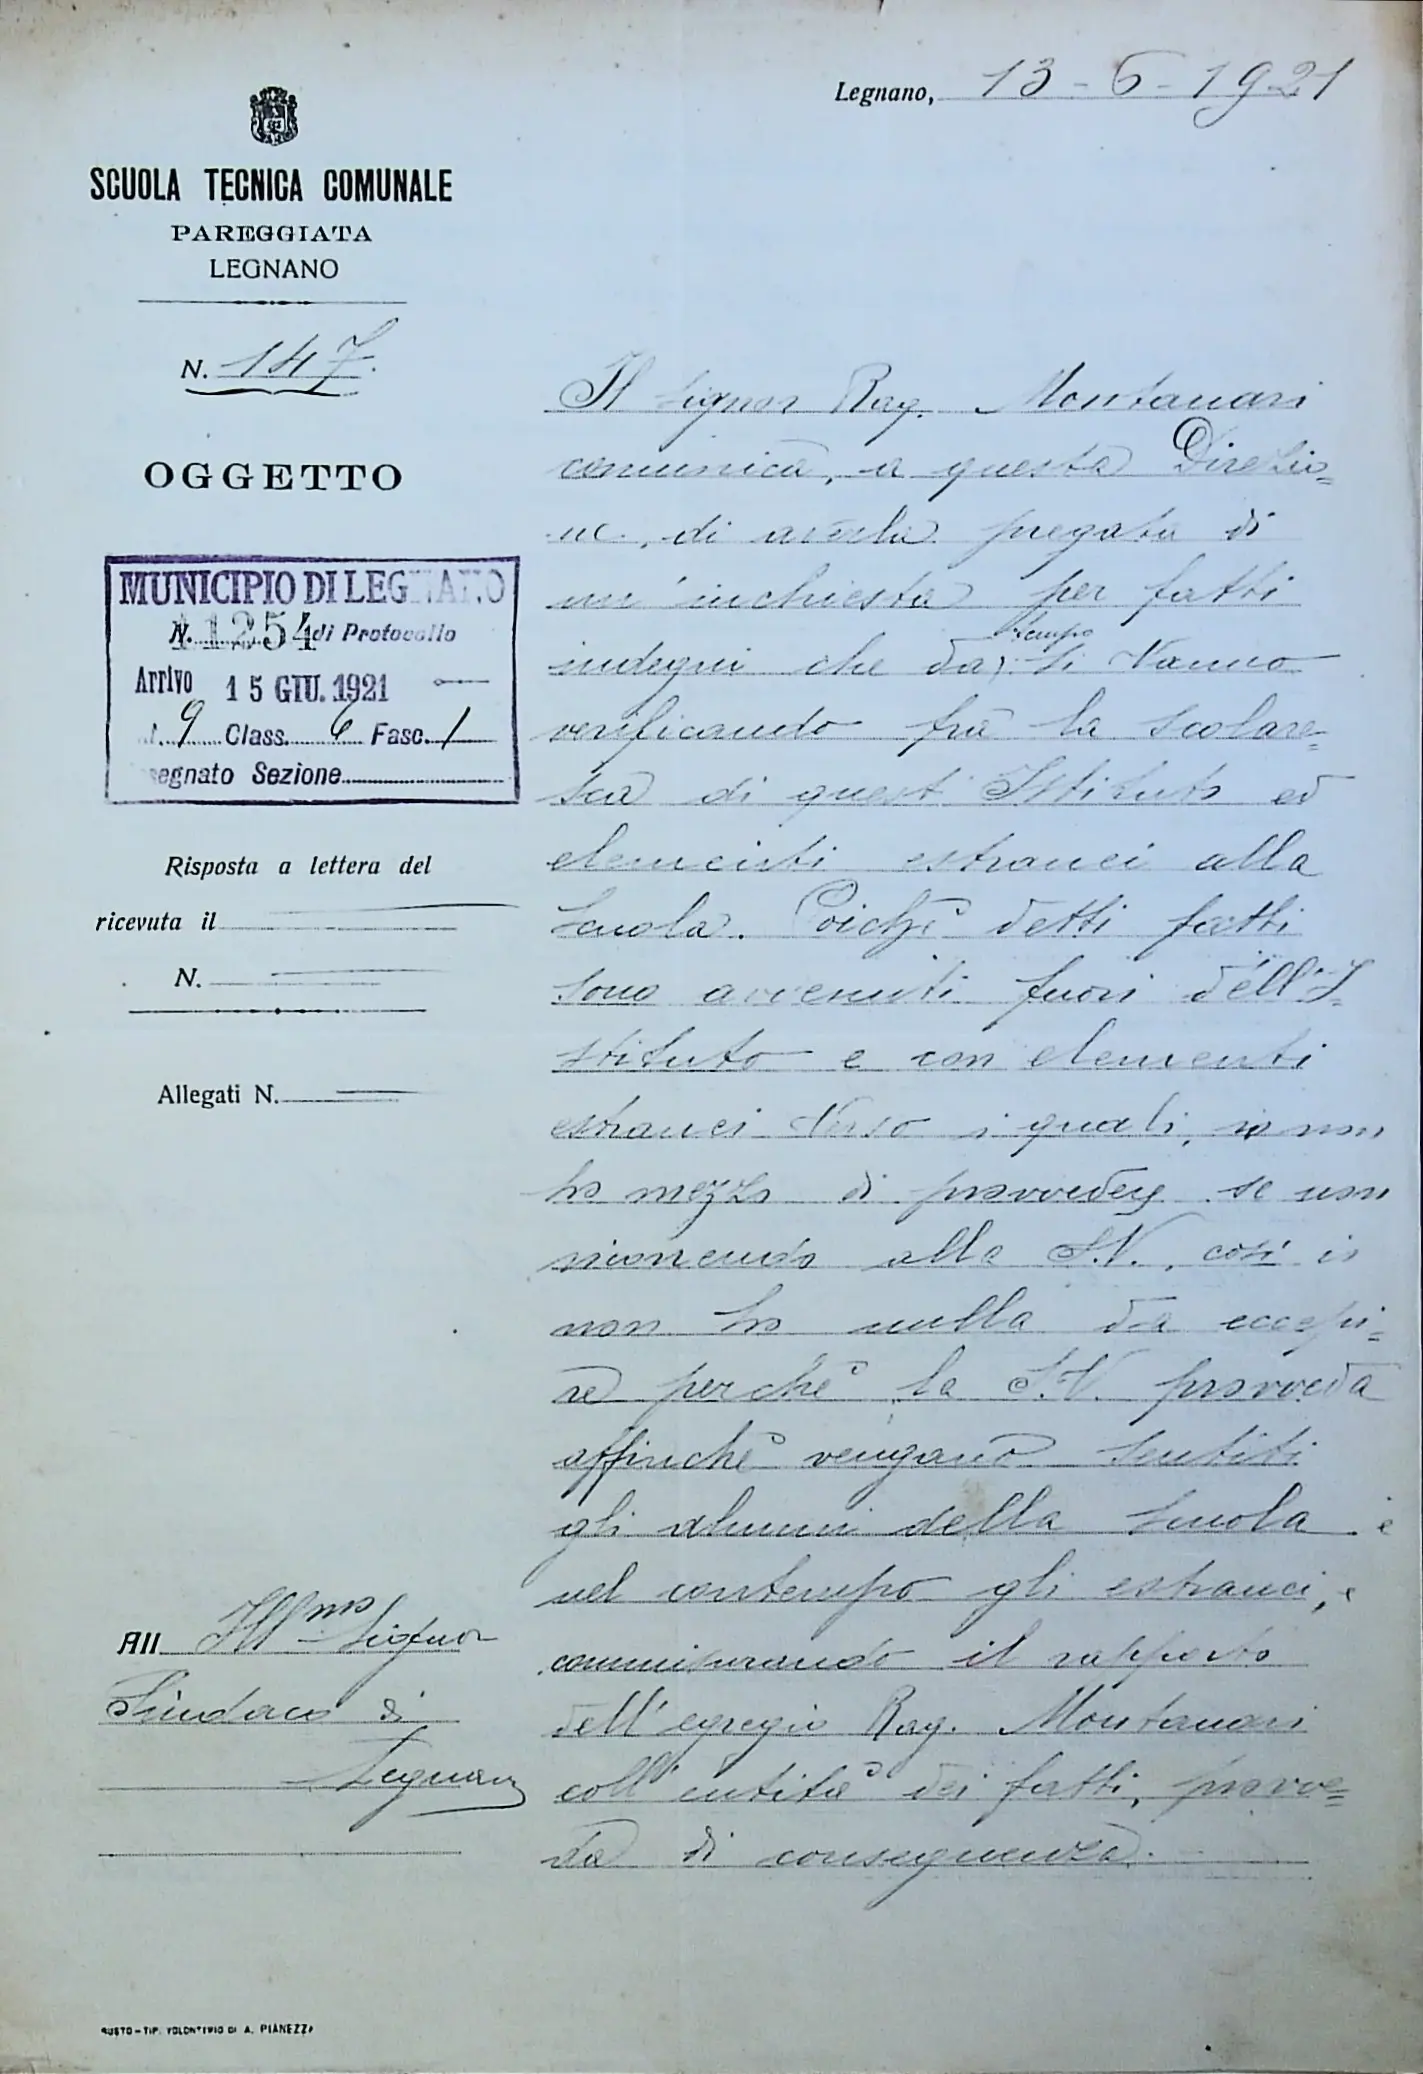 Legnano, 13-6-1921
SCUOLA TECNICA COMUNALE
PAREGGIATA
LEGNANO
N. 147.
OGGETTO
MUNICIPIO DI LEGNANO
N. 11254 di Protocollo
Arrivo 15 GIU. 1921
9 Class. 6 Fasc. 1
segnato Sezione
Risposta a lettera del
ricevuta il
N.
Allegati N.
All Ill.mo Signor
Sindaco di
Legnano
Il Signor Rag. Montanari
comunica, a questa Direzio=
ne, di averla pregata di
un'inchiesta per fatti
indegni che da tempo si vanno
verificando fra la scolare=
sca di quest'Istituto ed
elementi estranei alla
Scuola. Poichè detti fatti
sono avvenuti fuori dell'I=
stituto e con elementi
estranei verso i quali, io non
ho mezzo di provvedere se non
ricorrendo alla S.V., così io
non ho nulla da eccepi=
re perchè la S.V. provveda
affinchè vengano sentiti
gli alunni della Scuola e
nel contempo gli estranei, e
commisurando il rapporto
dell'egregio Rag. Montanari
coll'entità dei fatti, provve=
da di conseguenza.
BUSTO-TIP. VOLONTERIO DI A. PIANEZZA